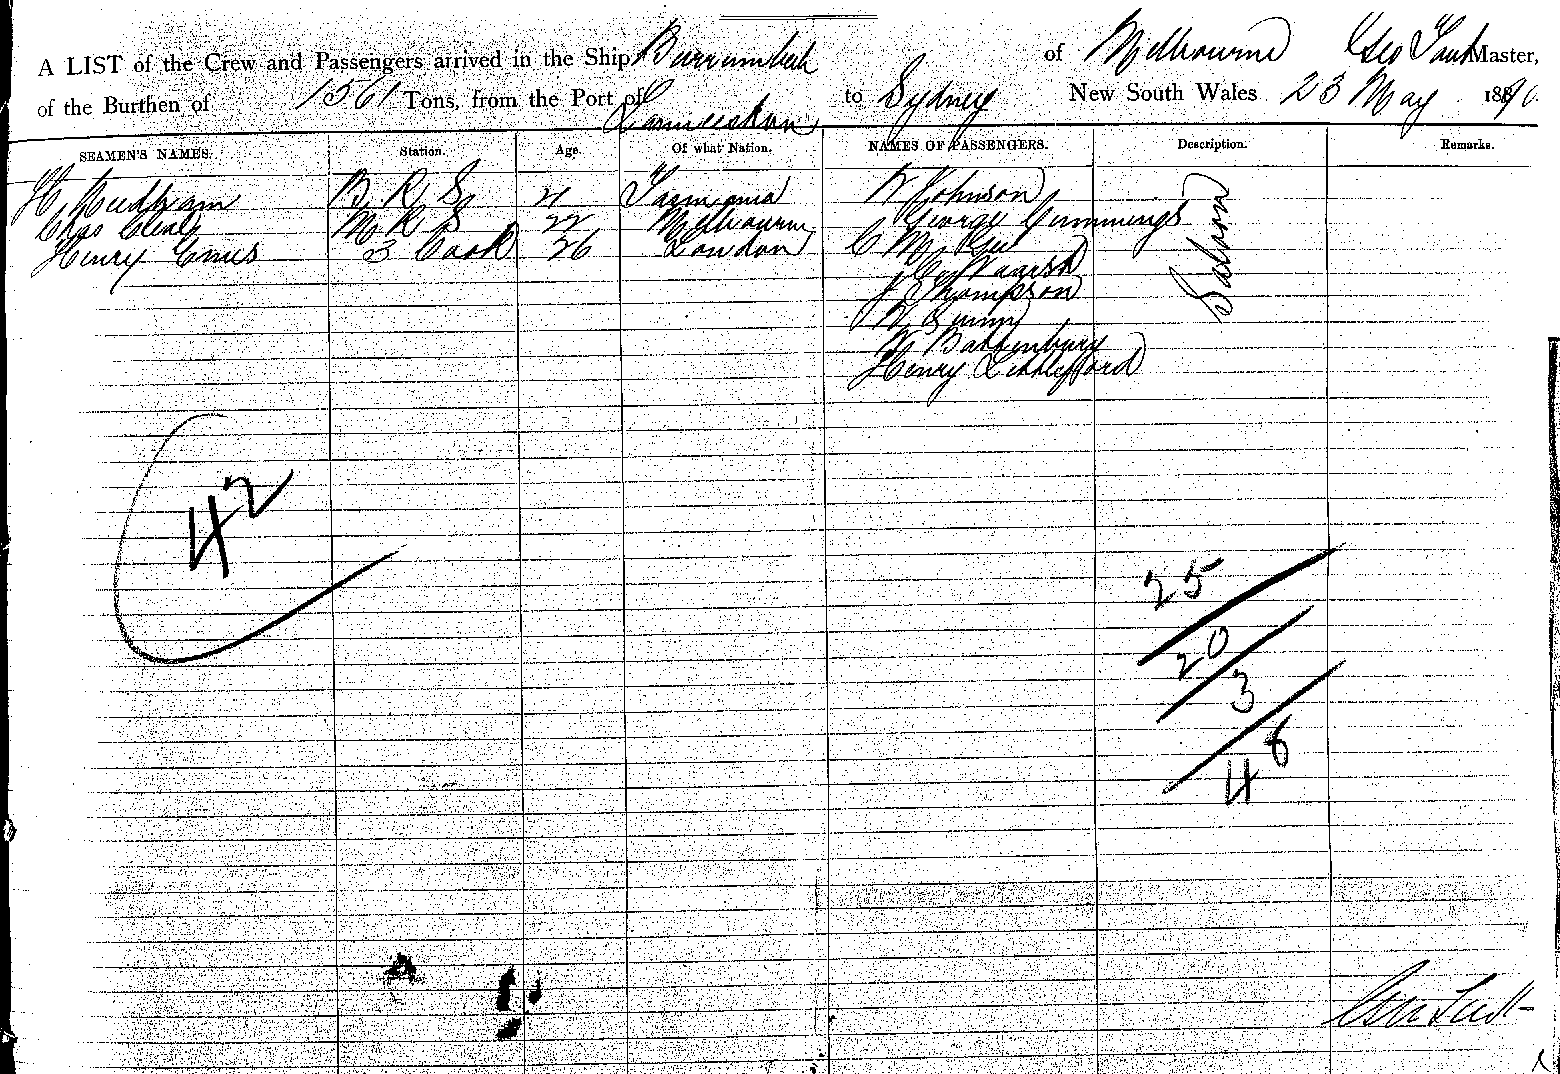 A LIST of the Crew and Passengers arrived in the Ship Burrumbeet of Melbourne Geo Master,
of the Burthen of 1561 Tons, from the Port of Launceston to Sydney New South Wales 23 May 1890
SEAMEN'S NAMES. Station. Age. Of what Nation. NAMES OF PASSENGERS. Description. Remarks.
H. Needham B R S 21 Tasmania Johnson Saloon
Chas M R S 22 Melbourne George Cummings
Henry 3 Cook 26 London C
J Thompson
Battenbury
Henry Littleford
42
25
20
3
48